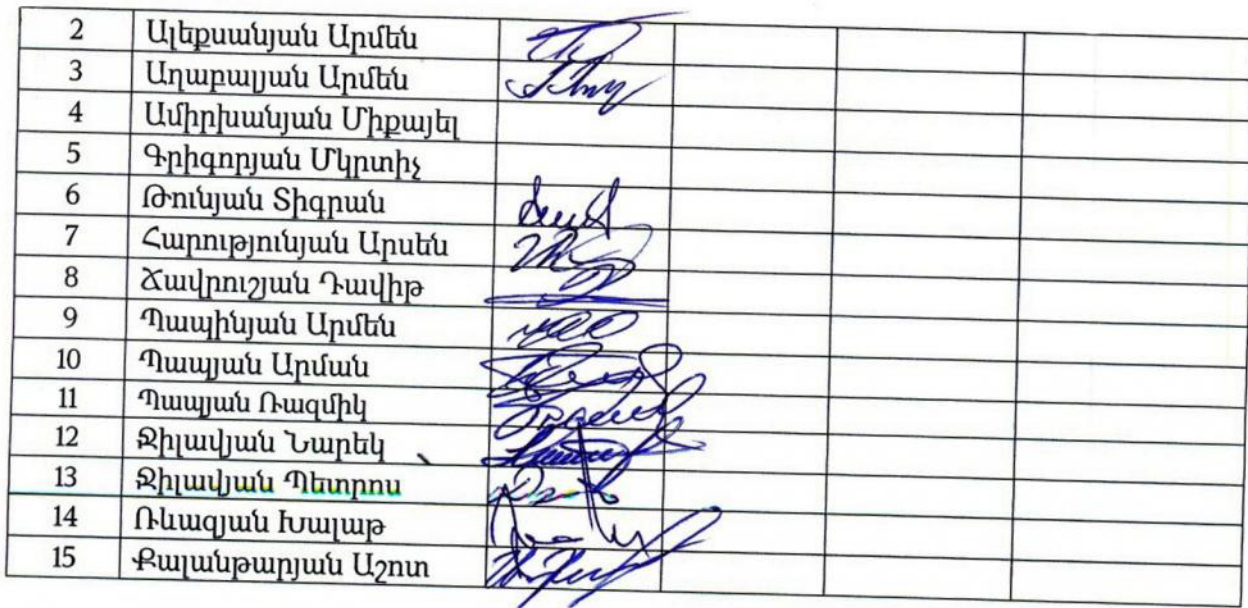 2 Ալեքսանյան Արմեն
3 Աղաբալյան Արմեն
4 Ամիրխանյան Միքայել
5 Գրիգորյան Մկրտիչ
6 Թունյան Տիգրան
7 Հարությունյան Արսեն
8 Ճավրուշյան Դավիթ
9 Պապինյան Արմեն
10 Պապյան Արման
11 Պապյան Ռազմիկ
12 Ջիլավյան Նարեկ
13 Ջիլավյան Պետրոս
14 Ռևազյան Խալաթ
15 Քալանթարյան Աշոտ